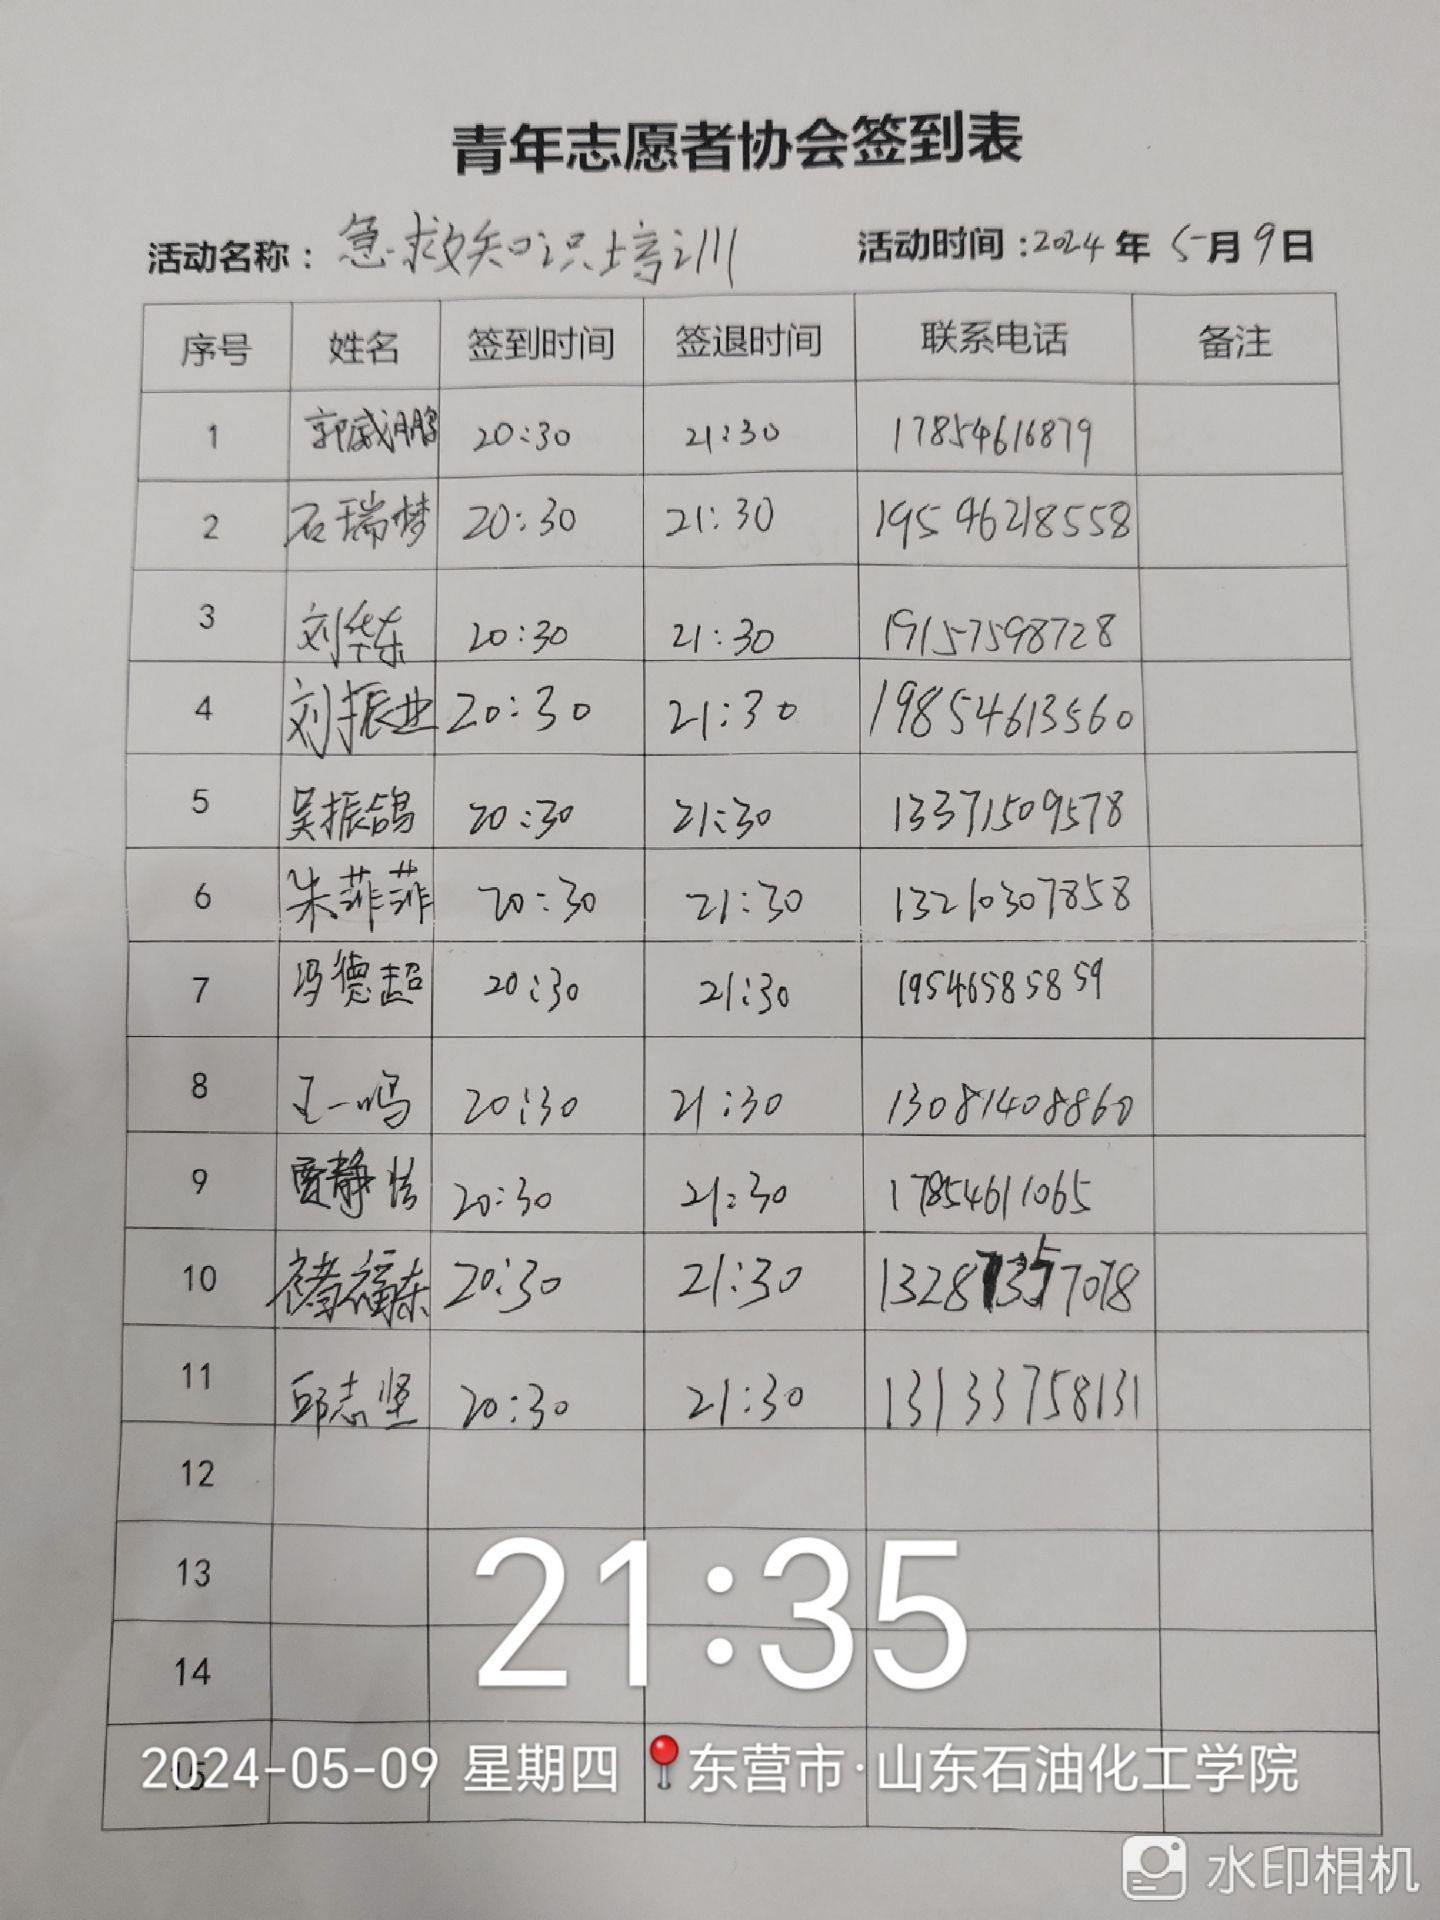 青年志愿者协会签到表
活动名称：急救知识培训 活动时间：2024年5月9日
序号 姓名 签到时间 签退时间 联系电话 备注
1 郭威鹏 20:30 21:30 17854616879
2 石瑞梦 20:30 21:30 19546218558
3 刘华东 20:30 21:30 19157598728
4 刘振业 20:30 21:30 19854613560
5 吴振鸽 20:30 21:30 13371509578
6 朱菲菲 20:30 21:30 13210307858
7 冯德超 20:30 21:30 19546585859
8 王一鸣 20:30 21:30 13081408860
9 贾静怡 20:30 21:30 17854611065
10 褚福东 20:30 21:30
11 邱志坚 20:30 21:30 13133758131
12
13
14
15
21:35
2024-05-09 星期四 东营市·山东石油化工学院
水印相机